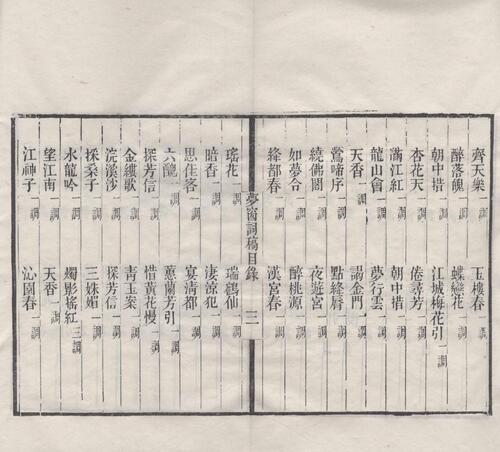 齊天樂一調 玉樓春一調
醉落魄一調 蝶戀花一調
朝中措一調 江城梅花引一調
杏花天一調 倦尋芳一調
滿江紅一調 朝中措一調
龍山會一調 夢行雲一調
天香一調 謁金門一調
鶯啼序一調 點絳脣一調
繞佛閣一調 夜遊宮一調
如夢令一調 醉桃源一調
絳都春一調 漢宮春一調
夢窗詞稿目錄 三
瑤花一調 瑞鶴仙一調
暗香一調 淒涼犯一調
思佳客一調 宴清都一調
六醜一調 蕙蘭芳引一調
探芳信一調 惜黃花慢一調
金縷歌一調 青玉案一調
浣溪沙一調 探芳信一調
採桑子一調 三姝媚一調
水龍吟一調 燭影搖紅三調
望江南一調 天香一調
江神子一調 沁園春一調